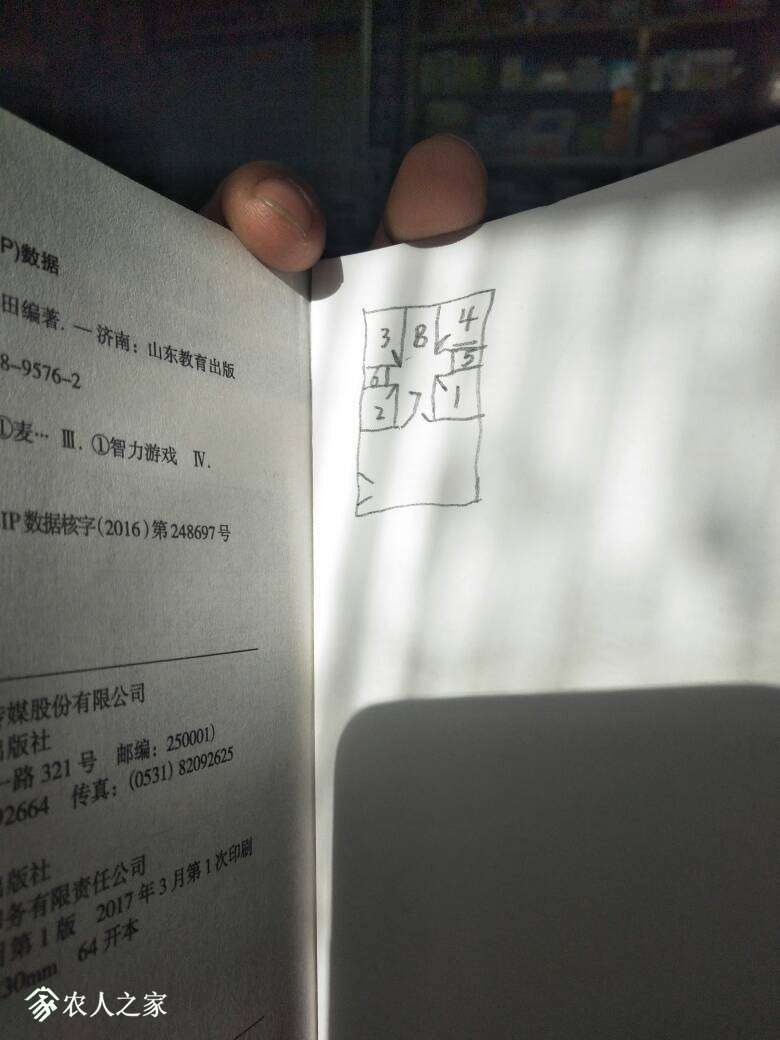 P)数据
田编著. — 济南：山东教育出版
8-9576-2
①麦… Ⅲ. ①智力游戏 Ⅳ.
IP数据核字(2016)第248697号
传媒股份有限公司
出版社
一路321号 邮编：250001)
92664 传真：(0531) 82092625
出版社
务有限责任公司
第1版 2017年3月第1次印刷
230mm 64开本
3 8 4
6 5
2 7 1
农人之家